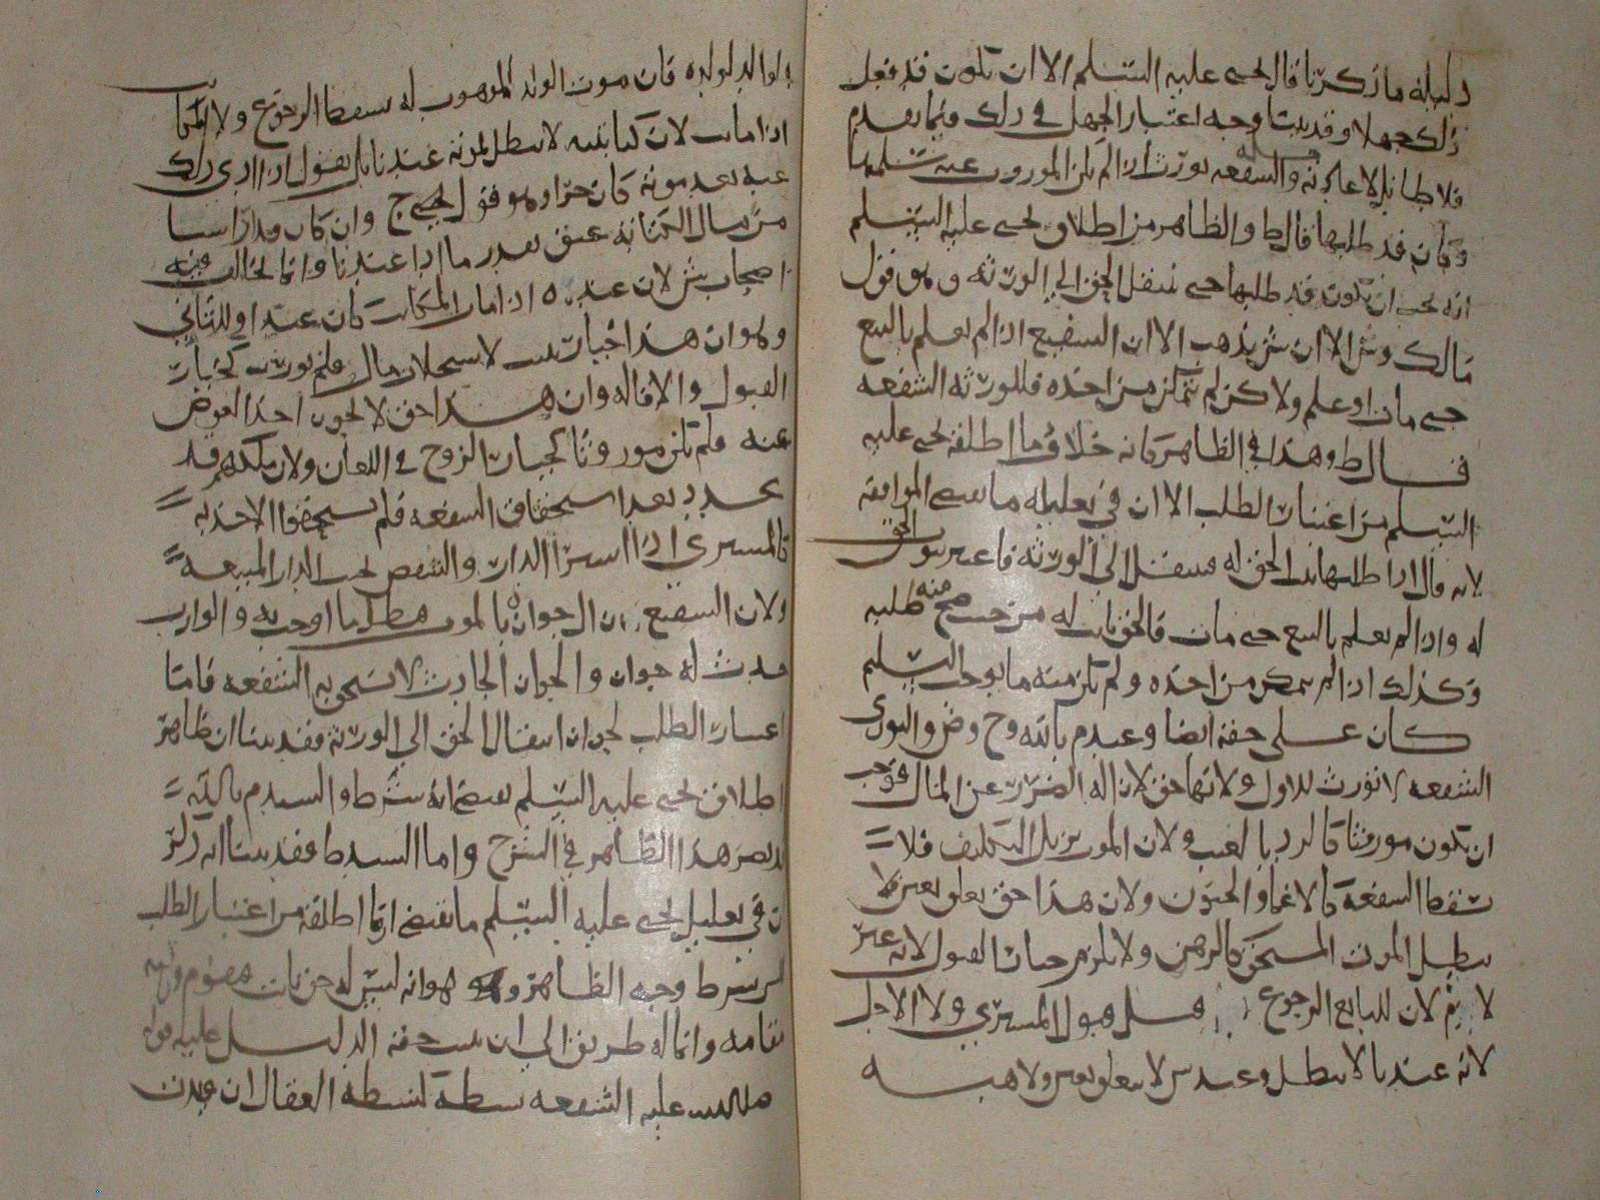 دليله ما ذكرنا قال يحيى عليه السلم الا ان تكون قد فعل
ذلك جهلا وقد بينا وجه اعتبار الجهل في ذلك فيما تقدم
والشفعه تورث اذا لم تكن الموروث عنه سلمها
وكان قد طلبها قال ط والظاهر من اطلاق يحيى عليه السلم
انه يجب ان تكون قد طلبها حتى ينتقل الحق الى الورثه وهو قول
مالك وش الا ان ش يذهب الا ان الشفيع اذا لم يعلم بالبيع
حتى مات او علم ولا كن لم يتمكن من اخذه فللورثه الشفعه
قال ط وهذا في الظاهر كانه خلاف ما اطلقه يحيى عليه
السلم من اعتبار الطلب الا ان في تعليله ما يقتضي الموافقه
لانه قال اذا طلبها ثبت الحق له فينتقل الى الورثه فاعتبر ثبوت الحق
له واذا لم يعلم بالبيع حتى مات فالحق ثابت له من حيث صح منه طلبه
وكذلك اذا لم يتمكن من اخذه ولم تكن منه ما يوجب التسليم
كان على حقه ايضا وعند م بالله وح وص والثوري
الشفعه لا تورث للاول ولانها حق لازاله الضرر عن المال فوجب
ان تكون موروثا كالرد بالعيب ولان الموت يزيل التكليف فلا
تسقط الشفعه كالاغما والجنون ولان هذا حق تعلق بعين فلا
يبطل الموت المستحق كالرهن ولا يلزم خيار القبول لانه غير
لازم لان للبايع الرجوع قبل قبول المشتري ولا الاجل
لانه عندنا لا يبطل وعند ش لا يتعلق بعين ولا هبه
الوالد لولده فان موت الولد الموهوب له يسقط الرجوع ولا المكاتب
اذا مات لان كتابته لا تبطل بموته عندنا بل نقول اذا ادى ذلك
عنه بعد موته كان حرا وهو قول ح وان كان قد ادا شيا
من مال الكتابه عتق بقدر ما ادا عندنا وانما يخالف فيه
اصحاب ش لان عنده اذا مات المكاتب كان عبدا وللثاني
وهو ان هذا خيار ثبت لاستجلاب مال فلم يورث كخيار
القبول والاقاله وان هذا حق لا يجوز اخذ العوض
عنه فلم تكن موروثا كخيار الزوج في اللعان ولان ملكهم قد
تجدد بعد استحقاق الشفعه فلم يستحقوا الاخذ به
كالمشتري اذا اشترا الدار والشقص بجنب الدار المبيعه
ولان الشفيع زال جواره بالموت فبطل ما اوجب به والوارث
حدث له جوار والجوار الحادث لا تستحق به الشفعه فاما
اعتبار الطلب لجواز انتقال الحق الى الورثه فقد بينا ان ظاهر
اطلاق يحيى عليه السلم يقتضي انه شرط والسيد م بالله
نصر هذا الظاهر في الشرح واما السيد ط فقد بينا انه ذكر
ان في تعليل يحيى عليه السلم ما يقتضي ان ما اطلقه من اعتبار الطلب
ليس بشرط وجه الظاهر وهو انه ليس له حق ثابت
وانما له طريق الى ان يثبت حقه الدليل عليه
عليه الشفعه نشطه كنشطه العقال ان قيدت